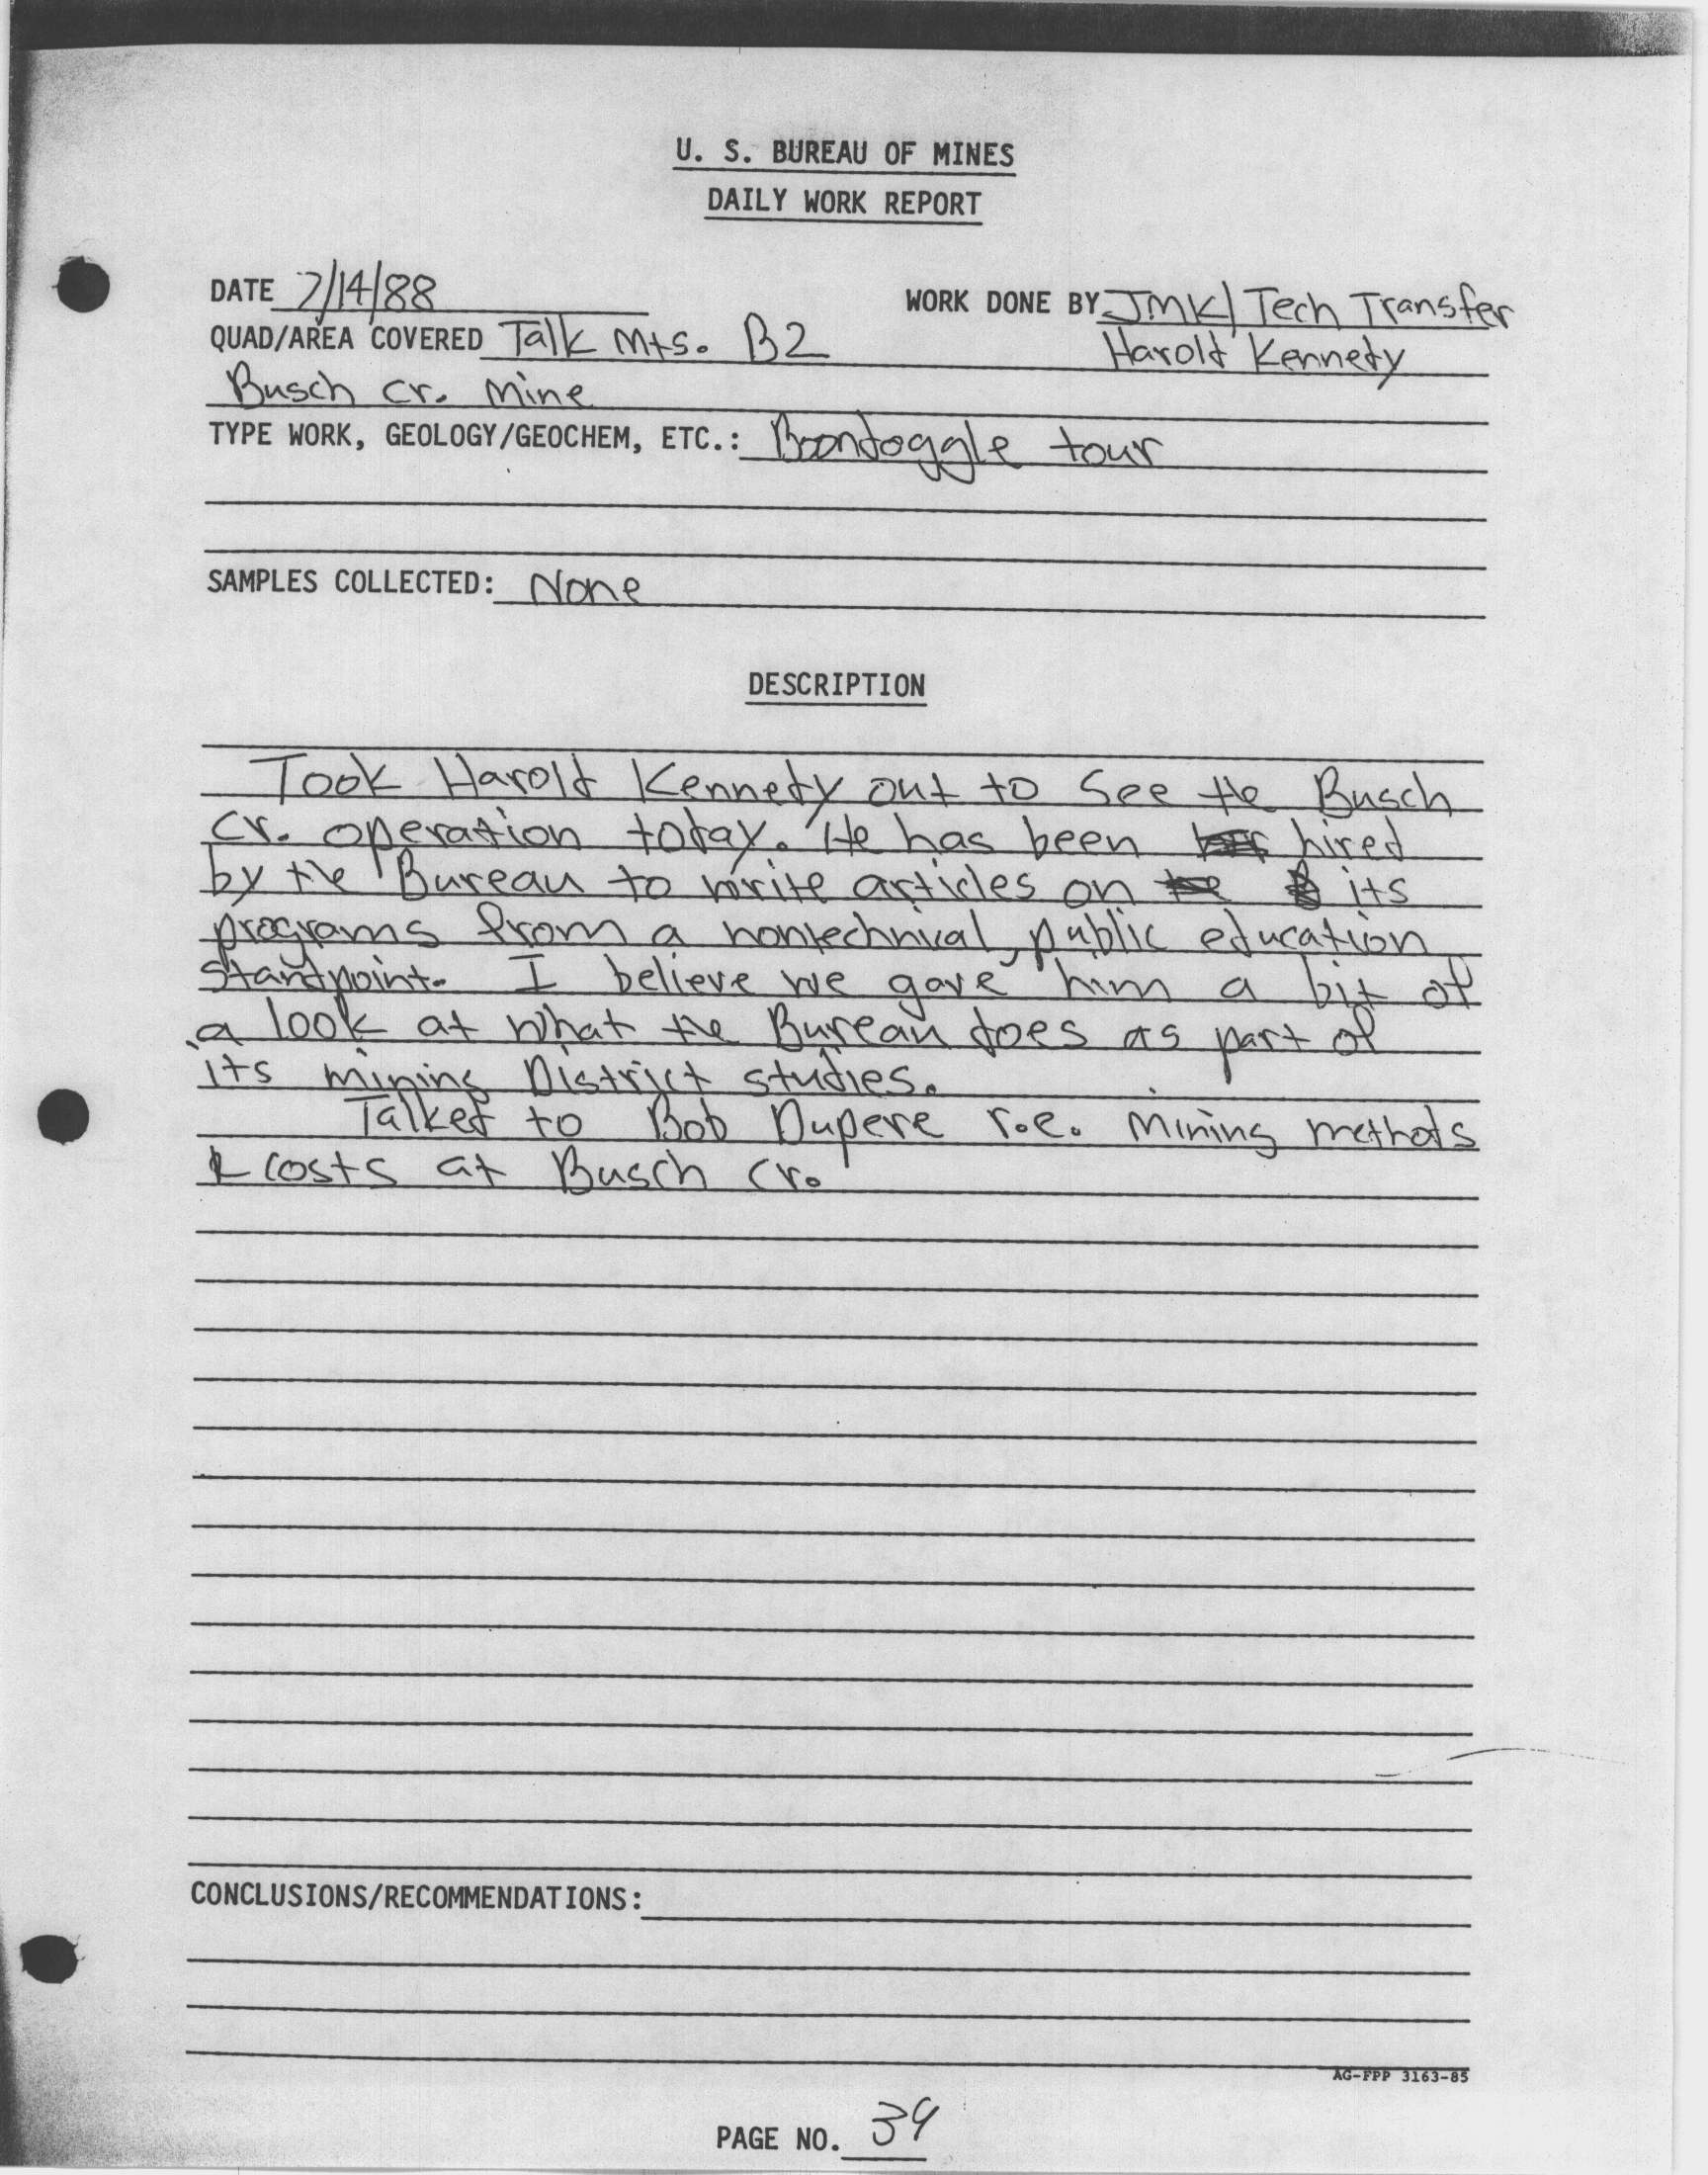 U. S. BUREAU OF MINES
DAILY WORK REPORT
DATE 7/14/88
WORK DONE BY JMK/Tech Transfer
QUAD/AREA COVERED Talk Mts. B2
Harold Kennedy
Busch Cr. Mine
TYPE WORK, GEOLOGY/GEOCHEM, ETC.: Boondoggle tour
SAMPLES COLLECTED: None
DESCRIPTION
Took Harold Kennedy out to see the Busch
Cr. operation today. He has been hired
by the Bureau to write articles on its
programs from a nontechnical, public education
standpoint. I believe we gave him a bit of
a look at what the Bureau does as part of
its mining District studies.
Talked to Bob Dupere r.e. mining methods
& costs at Busch Cr.
CONCLUSIONS/RECOMMENDATIONS:
AG-FPP 3163-85
PAGE NO. 39